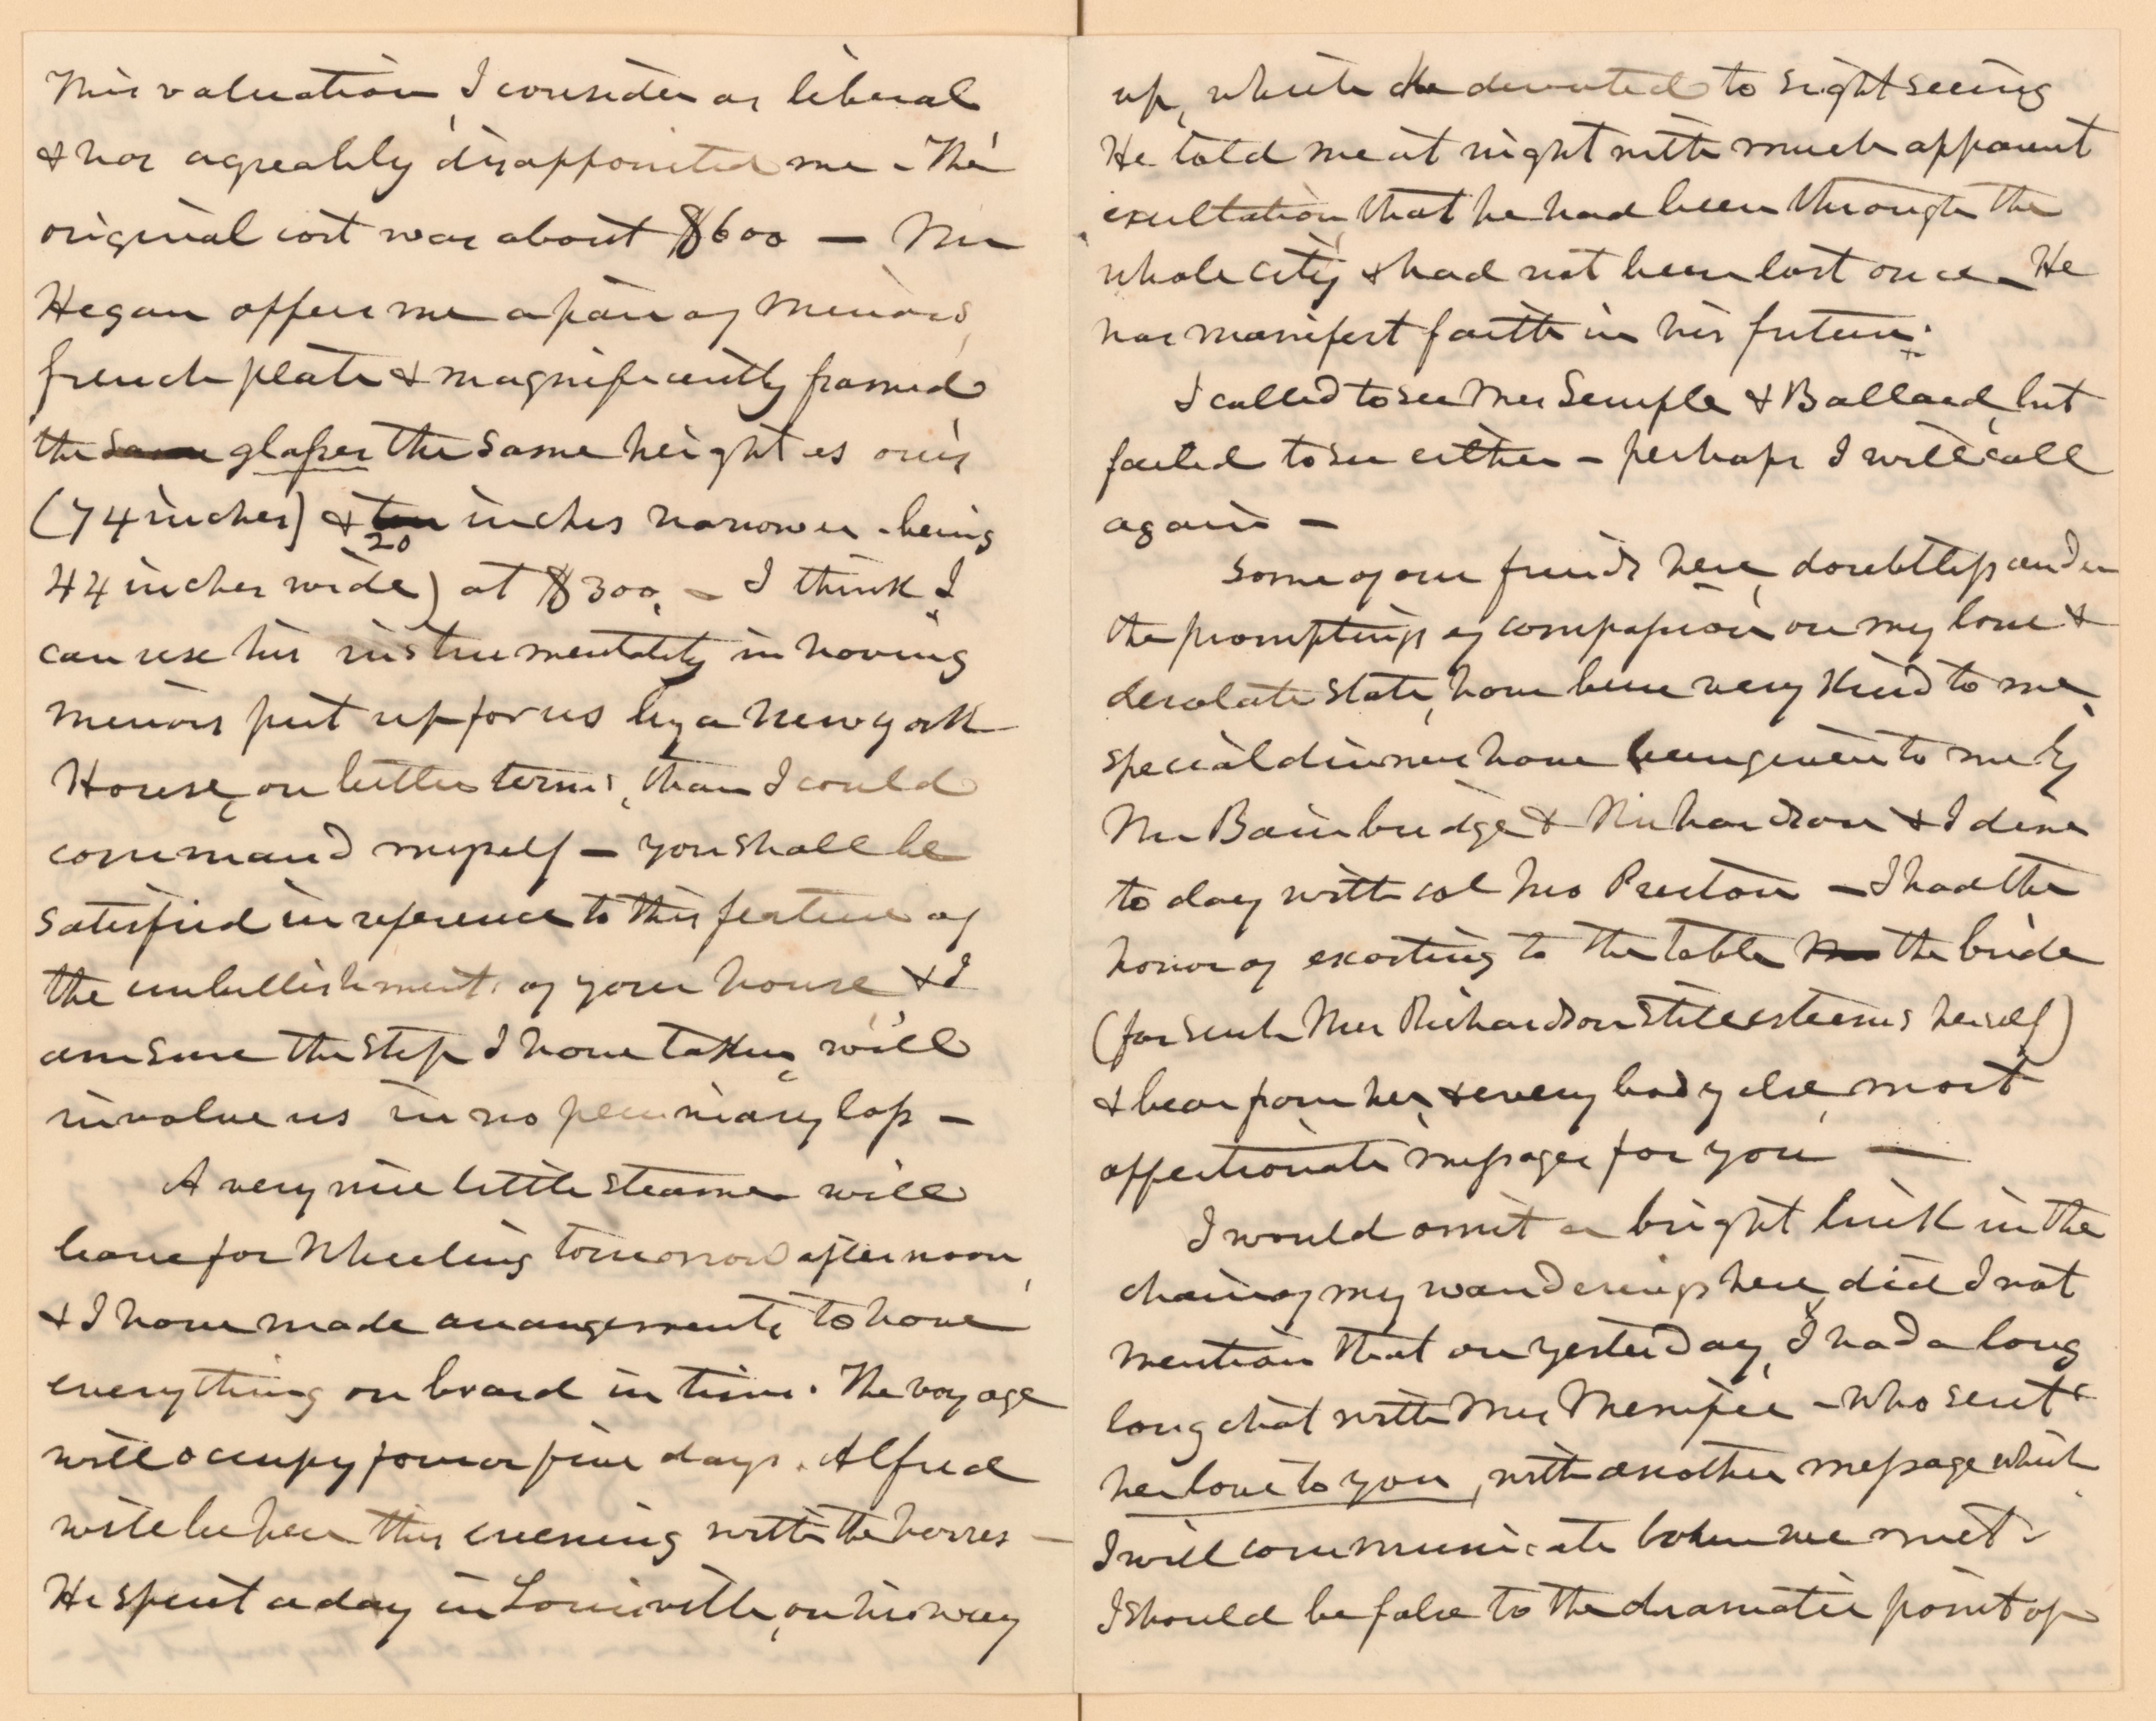 This valuation, I consider as liberal
& has agreably disappointed me – The
original cost was about $600 – Mr
Hegan offers me a pair of mirrors,
french plate & magnificently framed
the same glasses the same height as ours
(74 inches) & ten inches narrower – being
20
44 inches wide) at $300, – I think I
can use his instrumentality in having
mirrors put up for us by a New york
House, on better terms, than I could
command myself – you shall be
satisfied in reference to this feature of
the embellishments of your house & I
am sure the step I have taken, will
involve us in no pecuniary loss –
A very nice little steamer will
leave for Wheeling tomorrow afternoon,
& I have made arrangements to have
everything on board in time. The voyage
will occupy four or five days. Alfred
will be here this evening with the horses –
He spent a day in Louisville, on his way
up, which he devoted to sight seeing
He told me at night with much apparent
exultation, that he had been through the
whole city & had not been lost once – He
has manifest faith in his future.
I called to see Mrs Semple & Ballard, but
failed to see either – perhaps I will call
again –
Some of our friends here, doubtless under
the promptings of compassion on my lone &
desolate state, have been very kind to me,
special dinners have been given to me by
Mrs Bainbridge & Richardson & I dine
to day with Col Preston – I had the
honor of escorting to the table the bride
(for such Mrs Richardson still esteems herself)
& bear from her, & every body else, most
affectionate messages for you –
I would omit a bright link in the
chain of my wanderings here, did I not
mention that on yesterday, I had a long
long chat with Mrs Menifee – who sent
her love to you, with another message which
I will communicate when we meet.
I should be false to the dramatic point of